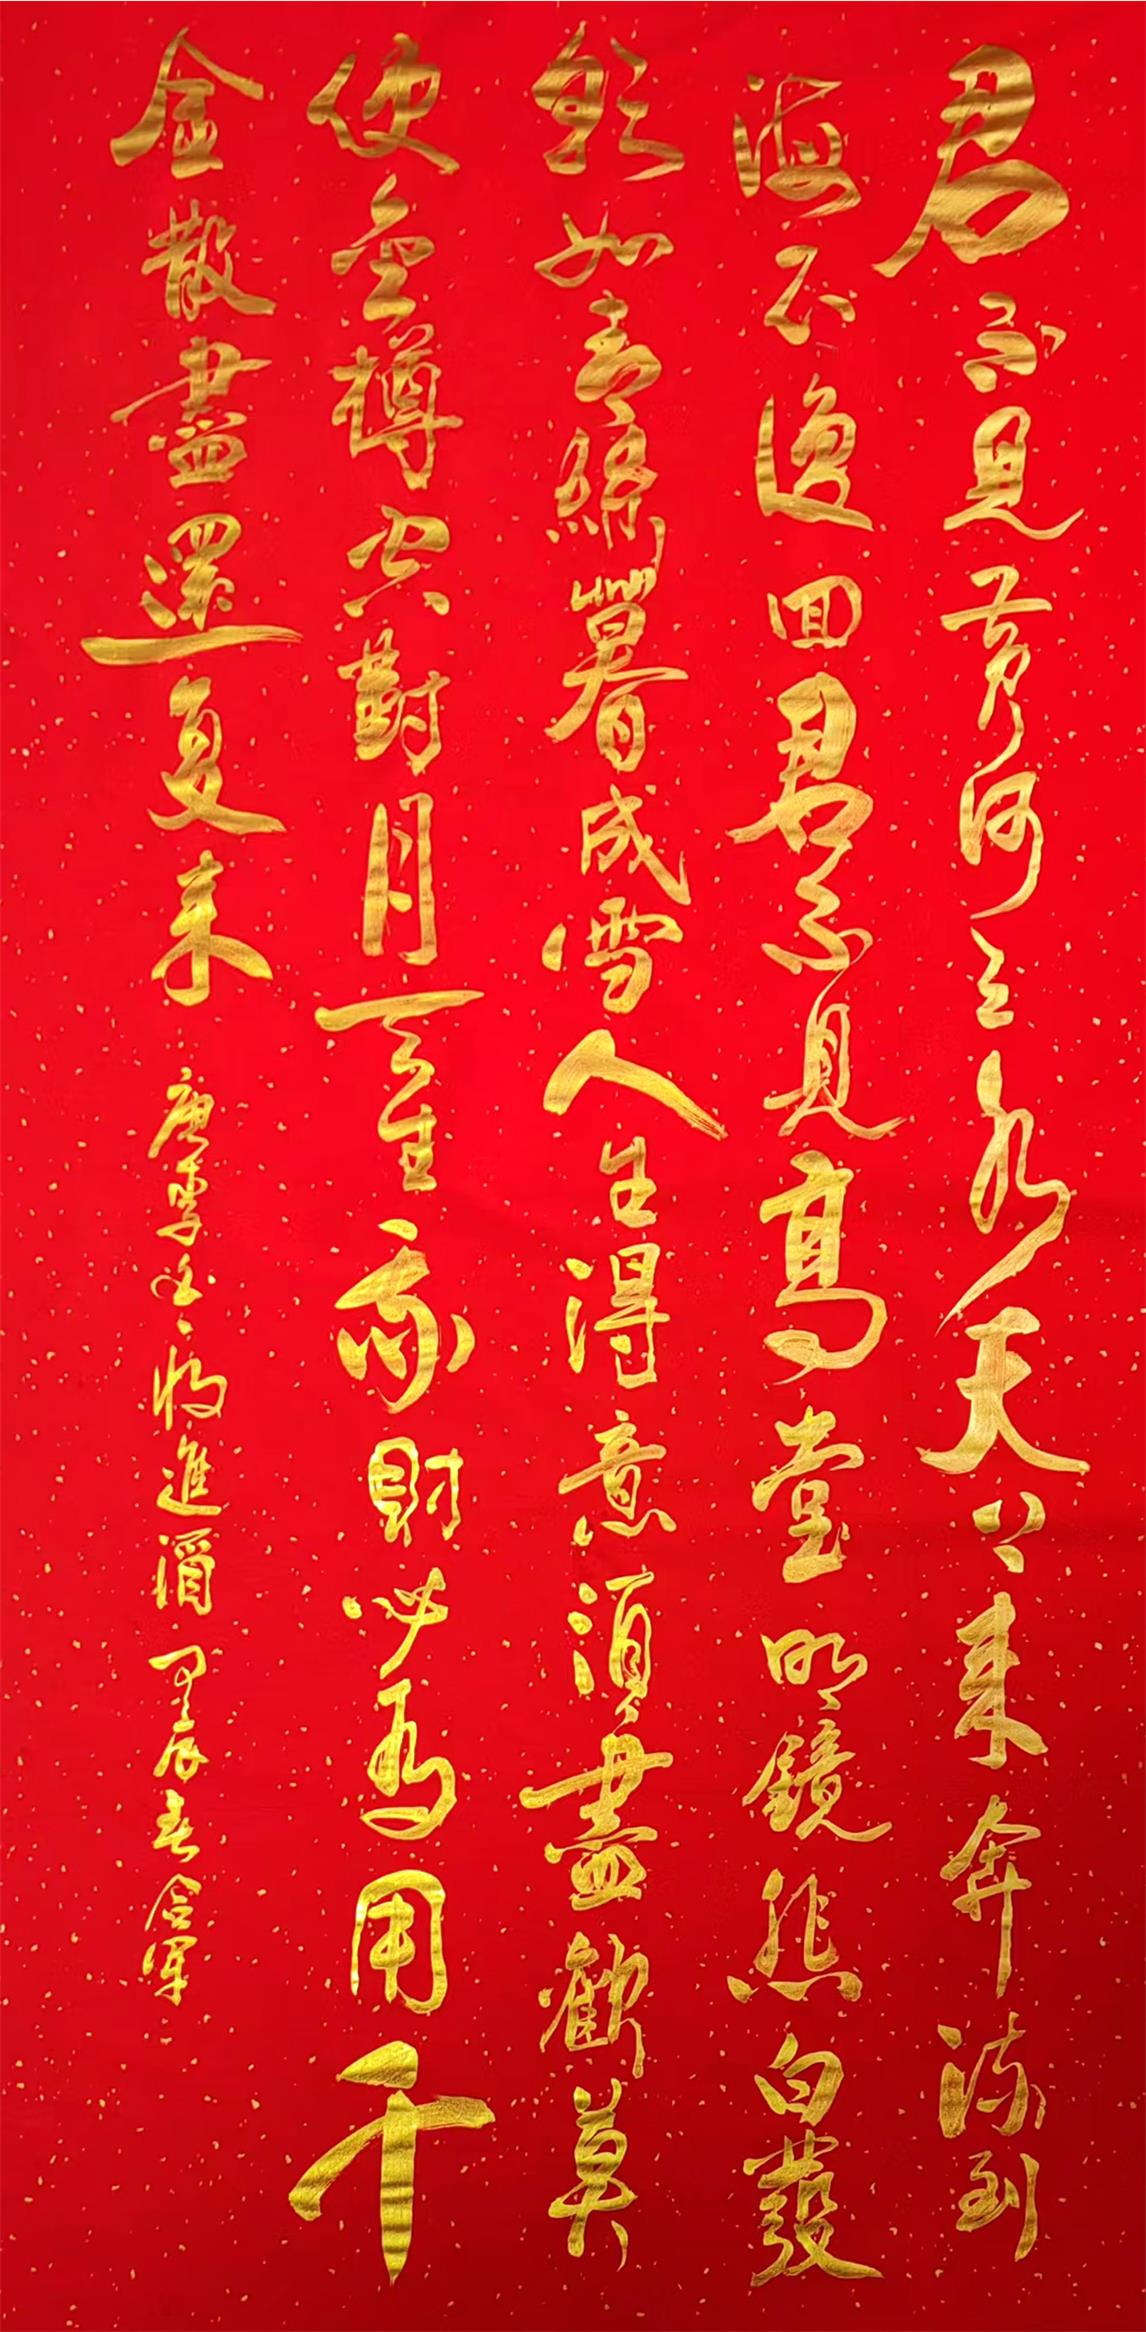 君不見黃河之水天上来奔流到
海不復回君不見高堂明鏡悲白發
朝如青絲暮成雪人生得意須盡歡莫
使金樽空對月天生我財必有用千
金散盡還复来 唐李白 將進酒 甲辰春